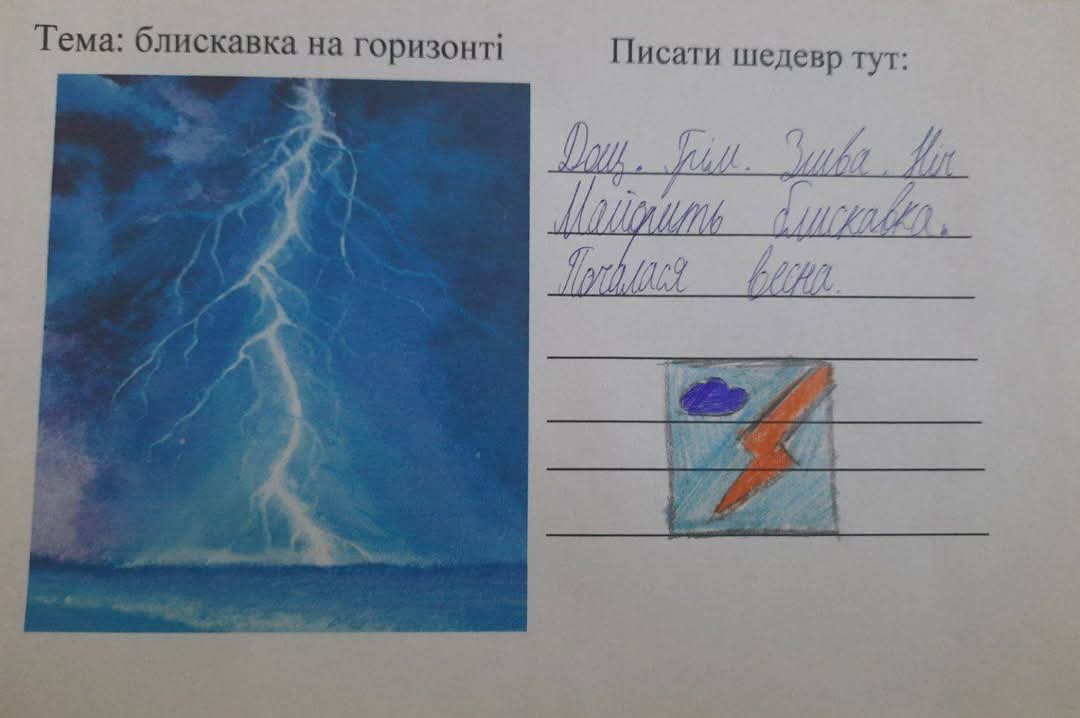 Тема: блискавка на горизонті
Писати шедевр тут:
Дощ. Грім. Злива. Ніч
Майорить блискавка.
Почалася весна.